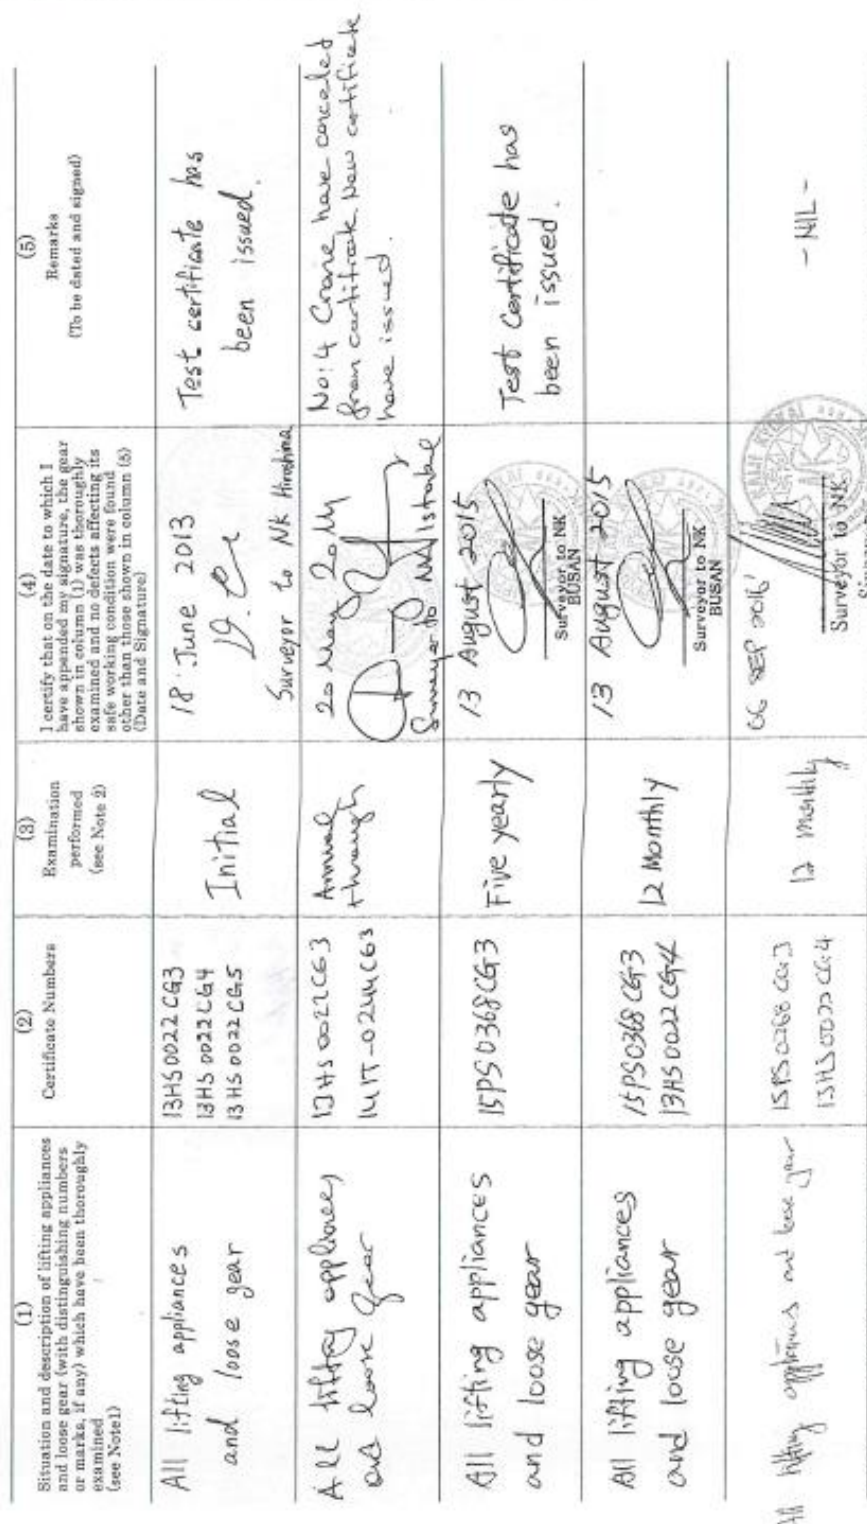 (1)
Situation and description of lifting appliances
and loose gear (with distinguishing numbers
or marks, if any) which have been thoroughly
examined
(see Note1)
(2)
Certificate Numbers
(3)
Examination
performed
(see Note 2)
(4)
I certify that on the date to which I
have appended my signature, the gear
shown in column (1) was thoroughly
examined and no defects affecting its
safe working condition were found
other than those shown in column (5)
(Date and Signature)
(5)
Remarks
(To be dated and signed)
All lifting appliances
and loose gear
13HS0022CG3
13HS0022CG4
13HS0022CG5
Initial
18 June 2013
Surveyor to NK Hiroshima
Test certificate has
been issued.
All lifting appliances
and loose gear
13HS0022CG3
Annual
through
20 May
Surveyor to NK Istanbul
No:4 Crane have canceled
from certificate New certificate
have issued.
All lifting appliances
and loose gear
15PS0368CG3
Five yearly
13 August 2015
Surveyor to NK
BUSAN
Test Certificate has
been issued.
All lifting appliances
and loose gear
15PS0368CG3
13HS0022CG4
12 Monthly
13 August 2015
Surveyor to NK
BUSAN
All lifting appliances and loose gear
13HS0022CG4
12 monthly
06 SEP 2016
Surveyor to NK
- NIL -